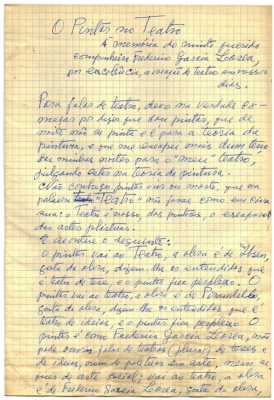 O Pintor no Teatro
À memória do muito querido
companheiro Federico García Lorca,
por excelência, a vocação de Teatro em nossos
dias.
Para falar de teatro, devo na verdade co-
meçar por dizer que sou pintor, que de
mim não se pinte e é para a teoria da
pintura, e que me escapa mais dum tema
dos minhas notas para o "meu" teatro,
julgando estar na teoria da pintura.
Não conheço pintor vivo ou morto, que na
palavra "Teatro" não fosse como em coisa
sua: o teatro é nosso, dos pintores, o escaparate
das artes plásticas.
E acontece o seguinte:
O pintor vai ao Teatro, a obra é de Ibsen,
gosta da obra, dizem-lhe os entendidos que
é teatro de tese, e o pintor fica perplexo. O
pintor vai ao teatro, a obra é de Pirandello,
gosta da obra, dizem-lhe os entendidos que é
teatro de ideias, e o pintor fica perplexo. O
pintor é como Federico García Lorca, não
pode ouvir falar de teatros (plural) de teses e
de ideias, nem de política em arte, nem se-
quer de arte social, vai ao teatro a obra
é de Federico García Lorca, gosta da obra,